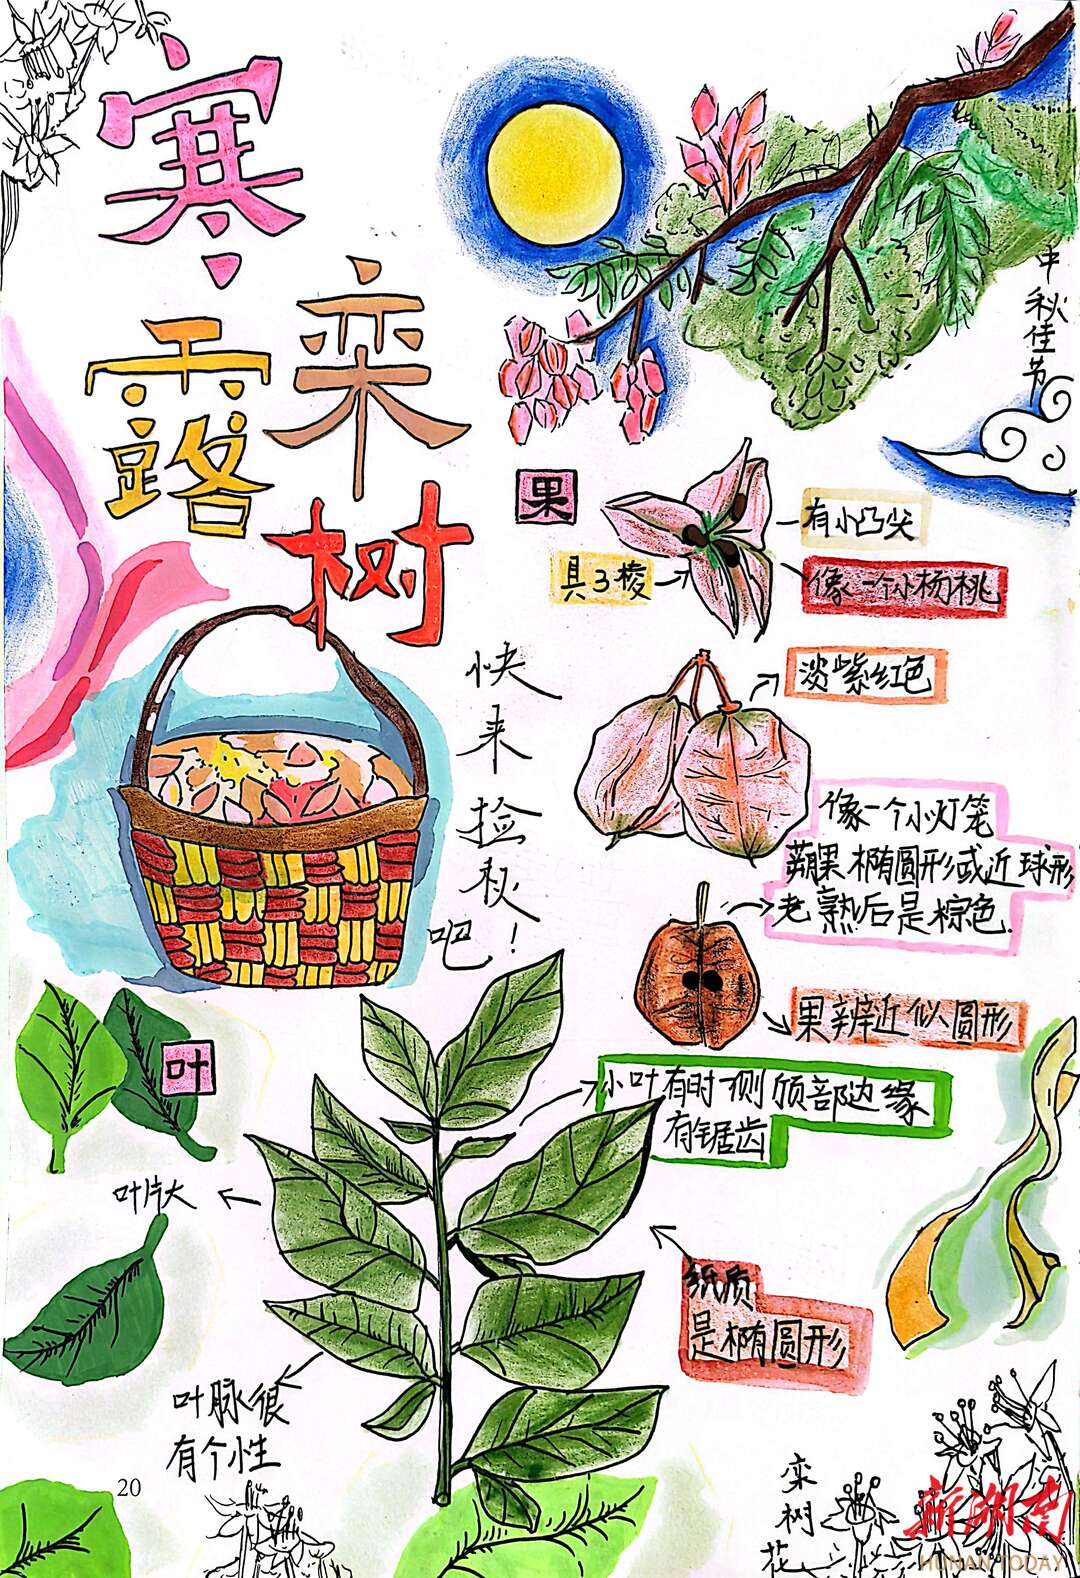 寒
露
栾
树
中秋佳节
果
有小凸尖
具3棱
像一个小杨桃
淡紫红色
快来捡秋吧！
像一个小灯笼
蒴果椭圆形或近球形
老熟后是棕色.
果瓣近似圆形
叶
小叶有时一侧顶部边缘
有锯齿
叶片大
纸质
是椭圆形
叶脉很
有个性
20
栾树花
新湖南
HUNAN TODAY